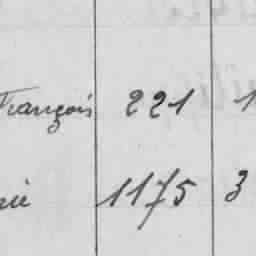 François 221 1
1175 3